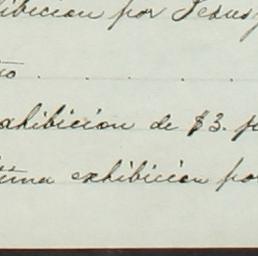 ibicion por Jesus
to . . . .
xhibicion de $3. p
tima exhibicion po